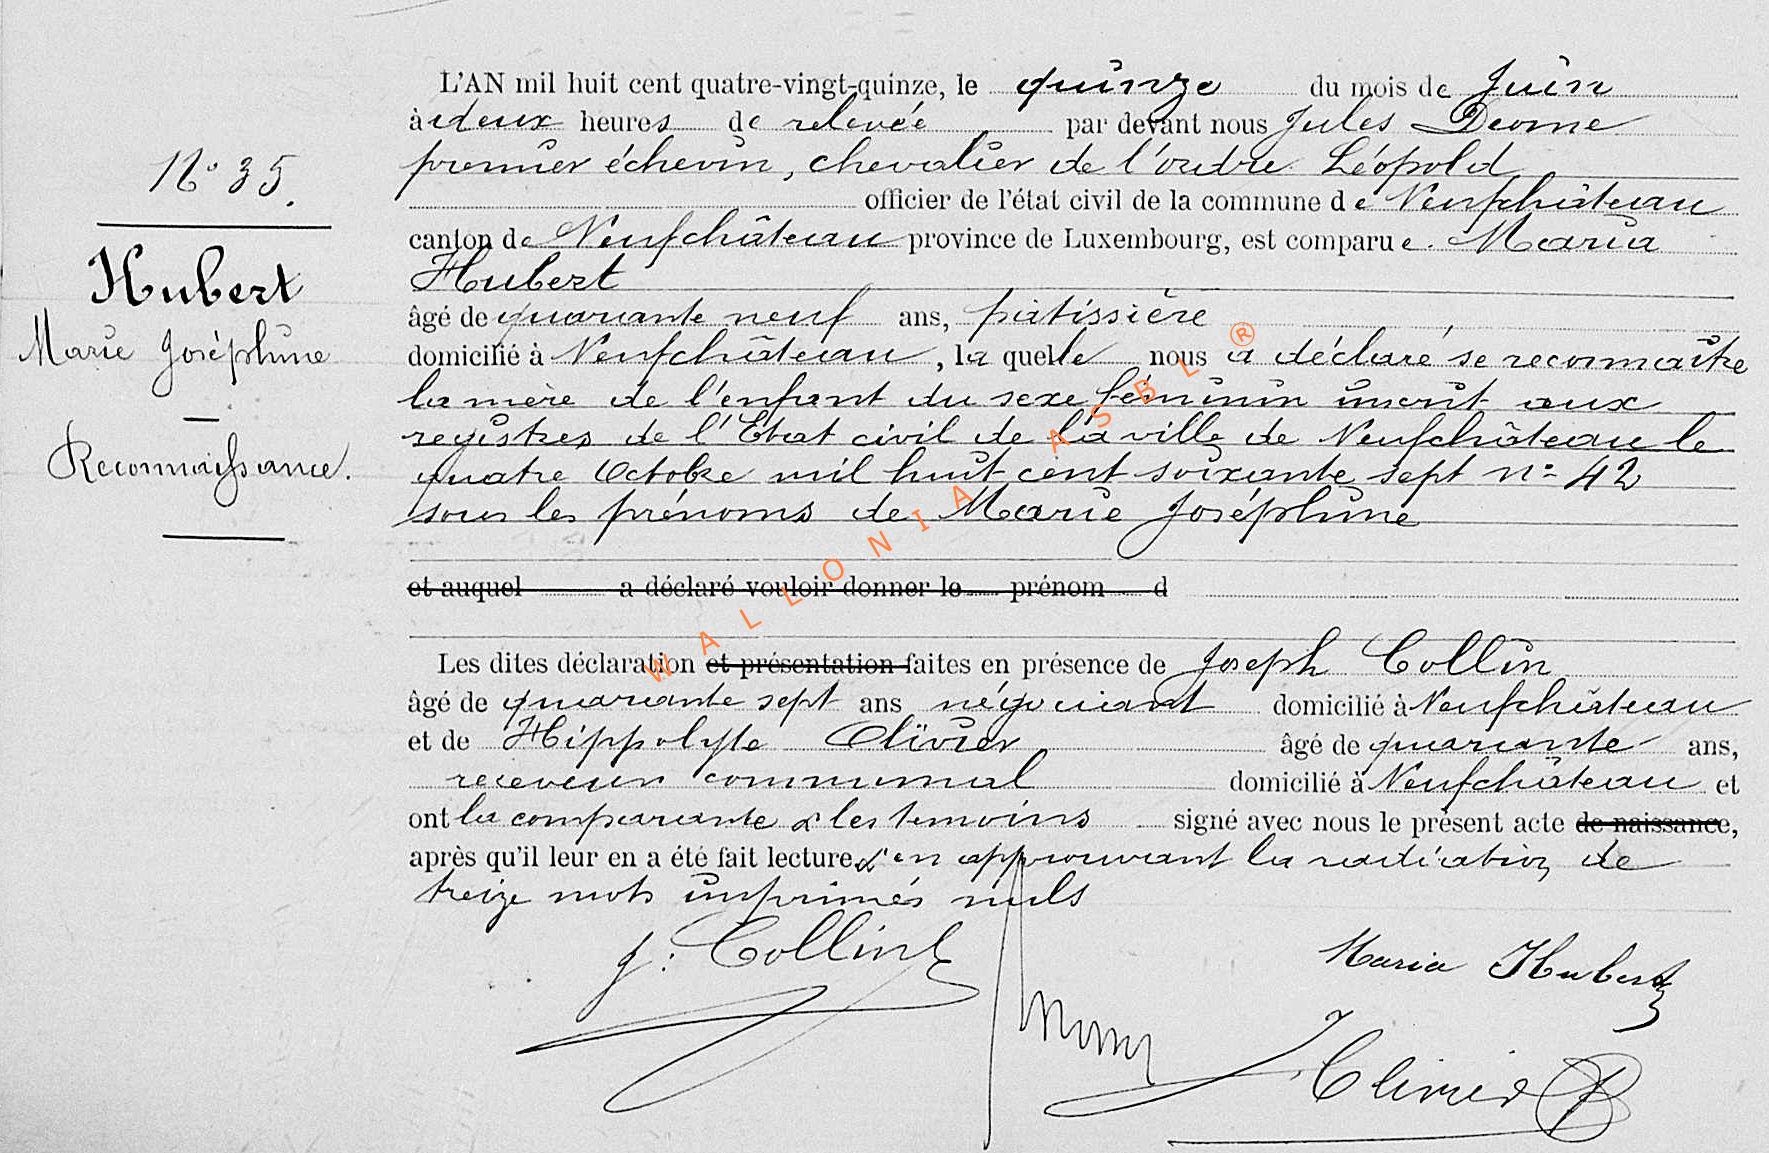 N° 35.
Hubert
Marie Joséphine
Reconnaissance.
L'AN mil huit cent quatre-vingt-quinze, le quinze du mois de Juin
à deux heures de relevée par devant nous Jules Deome
premier échevin, chevalier de l'ordre Léopold
officier de l'état civil de la commune de Neufchâteau
canton de Neufchâteau province de Luxembourg, est comparue. Maria
Hubert
âgé de quarante neuf ans, patissière
domicilié à Neufchâteau, la quelle nous a déclaré se reconnaître
la mère de l'enfant du sexe féminin inscrit aux
registres de l'Etat civil de la ville de Neufchâteau le
quatre Octobre mil huit cent soixante sept n° 42
sous les prénoms de Marie Joséphine
et auquel a déclaré vouloir donner le prénom d
Les dites déclaration et présentation faites en présence de Joseph Collin
âgé de quarante sept ans négociant domicilié à Neufchâteau
et de Hippolyte Olivier âgé de quarante ans,
receveur communal domicilié à Neufchâteau et
ont la comparante & les temoins signé avec nous le présent acte de naissance,
après qu'il leur en a été fait lecture & en approuvant la radiation de
treize mots imprimés nuls
J. Collin
Maria Hubert
Olivier
WALLONIA ASBL ®